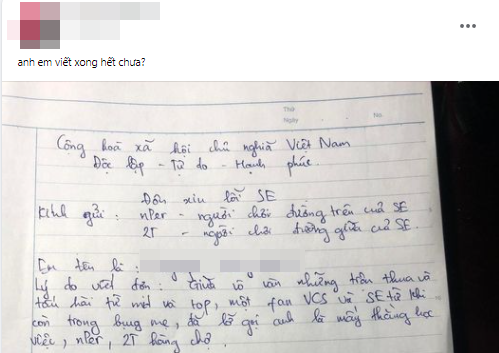 anh em viết xong hết chưa?
Thứ
Ngày
No.
Cộng hoà xã hội chủ nghĩa Việt Nam
Độc lập - Tự do - Hạnh phúc.
Đơn xin lỗi SE
Kính gửi : nPer - người chơi đường trên của SE
2T - người chơi đường giữa của SE.
Em tên là :
Lý do viết đơn : Giữa vô vàn những trận thua vô
từ mid và top, một fan VCS và SE từ khi
còn trong bụng mẹ, đã lỡ gọi anh là mấy thằng học
việc, nPer, 2T hàng chợ.